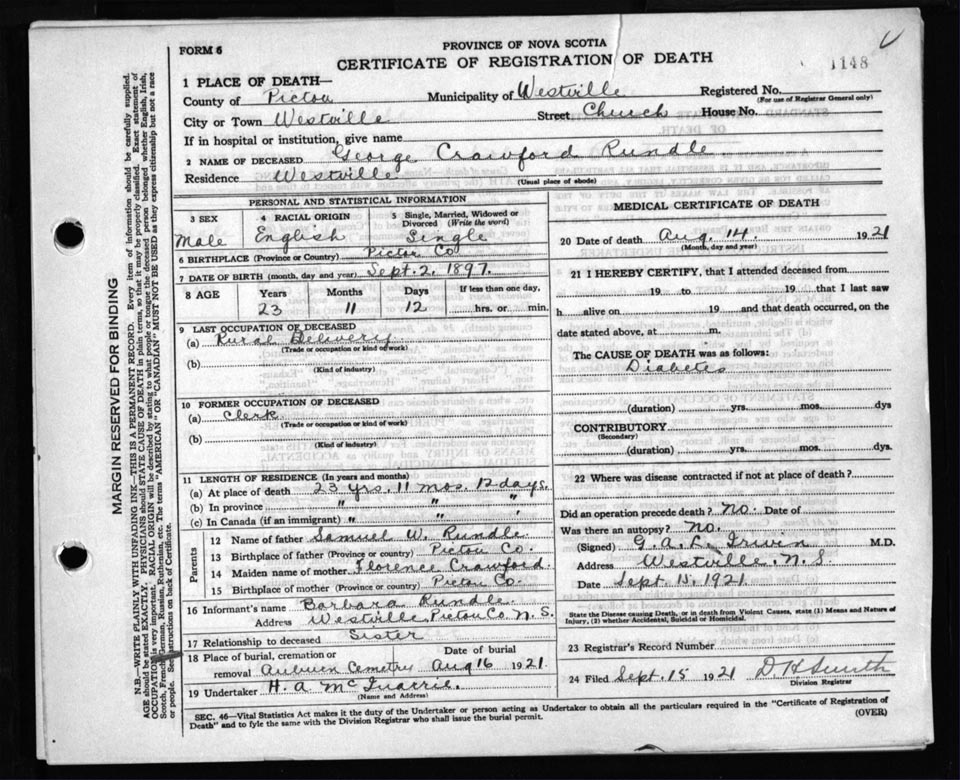 FORM 6
PROVINCE OF NOVA SCOTIA
CERTIFICATE OF REGISTRATION OF DEATH
1148
1 PLACE OF DEATH—
County of Pictou Municipality of Westville Registered No.
(For use of Registrar General only)
City or Town Westville Street Church House No.
If in hospital or institution, give name
2 NAME OF DECEASED George Crawford Rundle
Residence Westville
(Usual place of abode)
PERSONAL AND STATISTICAL INFORMATION
3 SEX 4 RACIAL ORIGIN 5 Single, Married, Widowed or Divorced (Write the word)
Male English Single
6 BIRTHPLACE (Province or Country) Pictou Co.
7 DATE OF BIRTH (month, day and year) Sept. 2, 1897.
8 AGE Years Months Days If less than one day,
23 11 12 hrs. or min.
9 LAST OCCUPATION OF DECEASED
(a) Rural Delivery
(Trade or occupation or kind of work)
(b)
(Kind of industry)
10 FORMER OCCUPATION OF DECEASED
(a) Clerk
(Trade or occupation or kind of work)
(b)
(Kind of industry)
11 LENGTH OF RESIDENCE (In years and months)
(a) At place of death 23 yrs. 11 mos. 12 days.
(b) In province " " "
(c) In Canada (if an immigrant) " " "
Parents
12 Name of father Samuel W. Rundle
13 Birthplace of father (Province or country) Pictou Co.
14 Maiden name of mother Florence Crawford.
15 Birthplace of mother (Province or country) Pictou Co.
16 Informant's name Barbara Rundle.
Address Westville Pictou Co N. S.
17 Relationship to deceased Sister
18 Place of burial, cremation or removal Date of burial
Auburn Cemetry Aug 16 1921.
19 Undertaker H. A. McQuarrie.
(Name and Address)
MEDICAL CERTIFICATE OF DEATH
20 Date of death Aug. 14. 1921
(Month, day and year)
21 I HEREBY CERTIFY, that I attended deceased from
19 to 19 that I last saw
h alive on 19 and that death occurred, on the
date stated above, at m.
The CAUSE OF DEATH was as follows:
Diabetes
(duration) yrs. mos. dys
CONTRIBUTORY
(Secondary)
(duration) yrs. mos. dys.
22 Where was disease contracted if not at place of death?
Did an operation precede death? No. Date of
Was there an autopsy? No.
(Signed) G. A. L. Irwin M.D.
Address Westville. N. S.
Date Sept. 15. 1921.
State the Disease causing Death, or in death from Violent Causes, state (1) Means and Nature of Injury, (2) whether Accidental, Suicidal or Homicidal.
23 Registrar's Record Number
24 Filed Sept. 15 1921 D H Smith
Division Registrar
SEC. 46—Vital Statistics Act makes it the duty of the Undertaker or person acting as Undertaker to obtain all the particulars required in the "Certificate of Registration of
Death" and to fyle the same with the Division Registrar who shall issue the burial permit. (OVER)
MARGIN RESERVED FOR BINDING
N.B.—WRITE PLAINLY WITH UNFADING INK—THIS IS A PERMANENT RECORD. Every item of information should be carefully supplied.
AGE should be stated EXACTLY. PHYSICIANS should STATE CAUSE OF DEATH in plain terms, so that it may be properly classified. Exact statement of
OCCUPATION is very important. RACIAL ORIGIN will be described by stating to what people or tongue the deceased person belonged whether English, Irish,
Scotch, French, German, Russian, Ruthenian, etc. The terms "AMERICAN" OR "CANADIAN" MUST NOT BE USED as they express citizenship but not a race
or people. See instructions on back of Certificate.